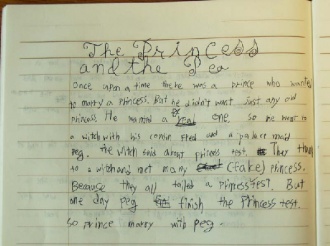 The Princess
and the Pea
Once upon a time there was a prince who wanted
to marry a princess. But he didn't want just any old
princess He wanted a real one. so he went to
a witch with his cousin Fred and a palace maid
peg. The witch said about princess test. They
to a witch and not marry (fake) princess.
Because they all failed a princess test. But
one day peg finish the Princess test.
so prince marry with peg.